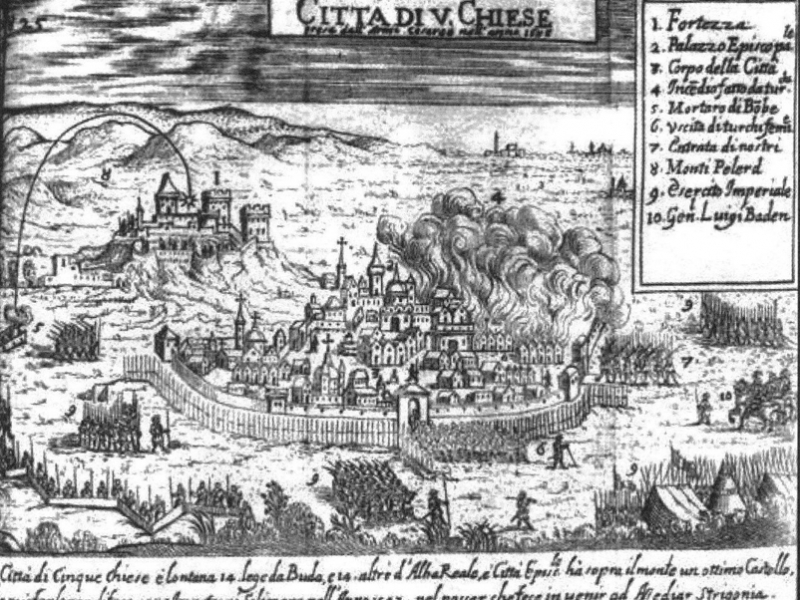 125
CITTA DI V. CHIESE
presa dall'Armi Cesaree nell'anno
1. Fortezza
2. Palazzo Episcopa le
3. Corpo della Città
4. Incēdio fatto da tur chi
5. Mortaro di Bōbe
6. Vscita di turchi femi e
7. Entrata di nostri
8. Monti Pelerd
9. Esercito Imperiale
10. Gen. Luigi Baden
1
8
4
9
5
7
3
10
9
6
9
9
Città di Cinque chiese è lontana 14. lege da Buda, e 14. altre d'Alba Reale, e Città Episc.le hà sopra il monte un ottimo Castello,
nel passar che fece in venir ad Assediar Strigonia.